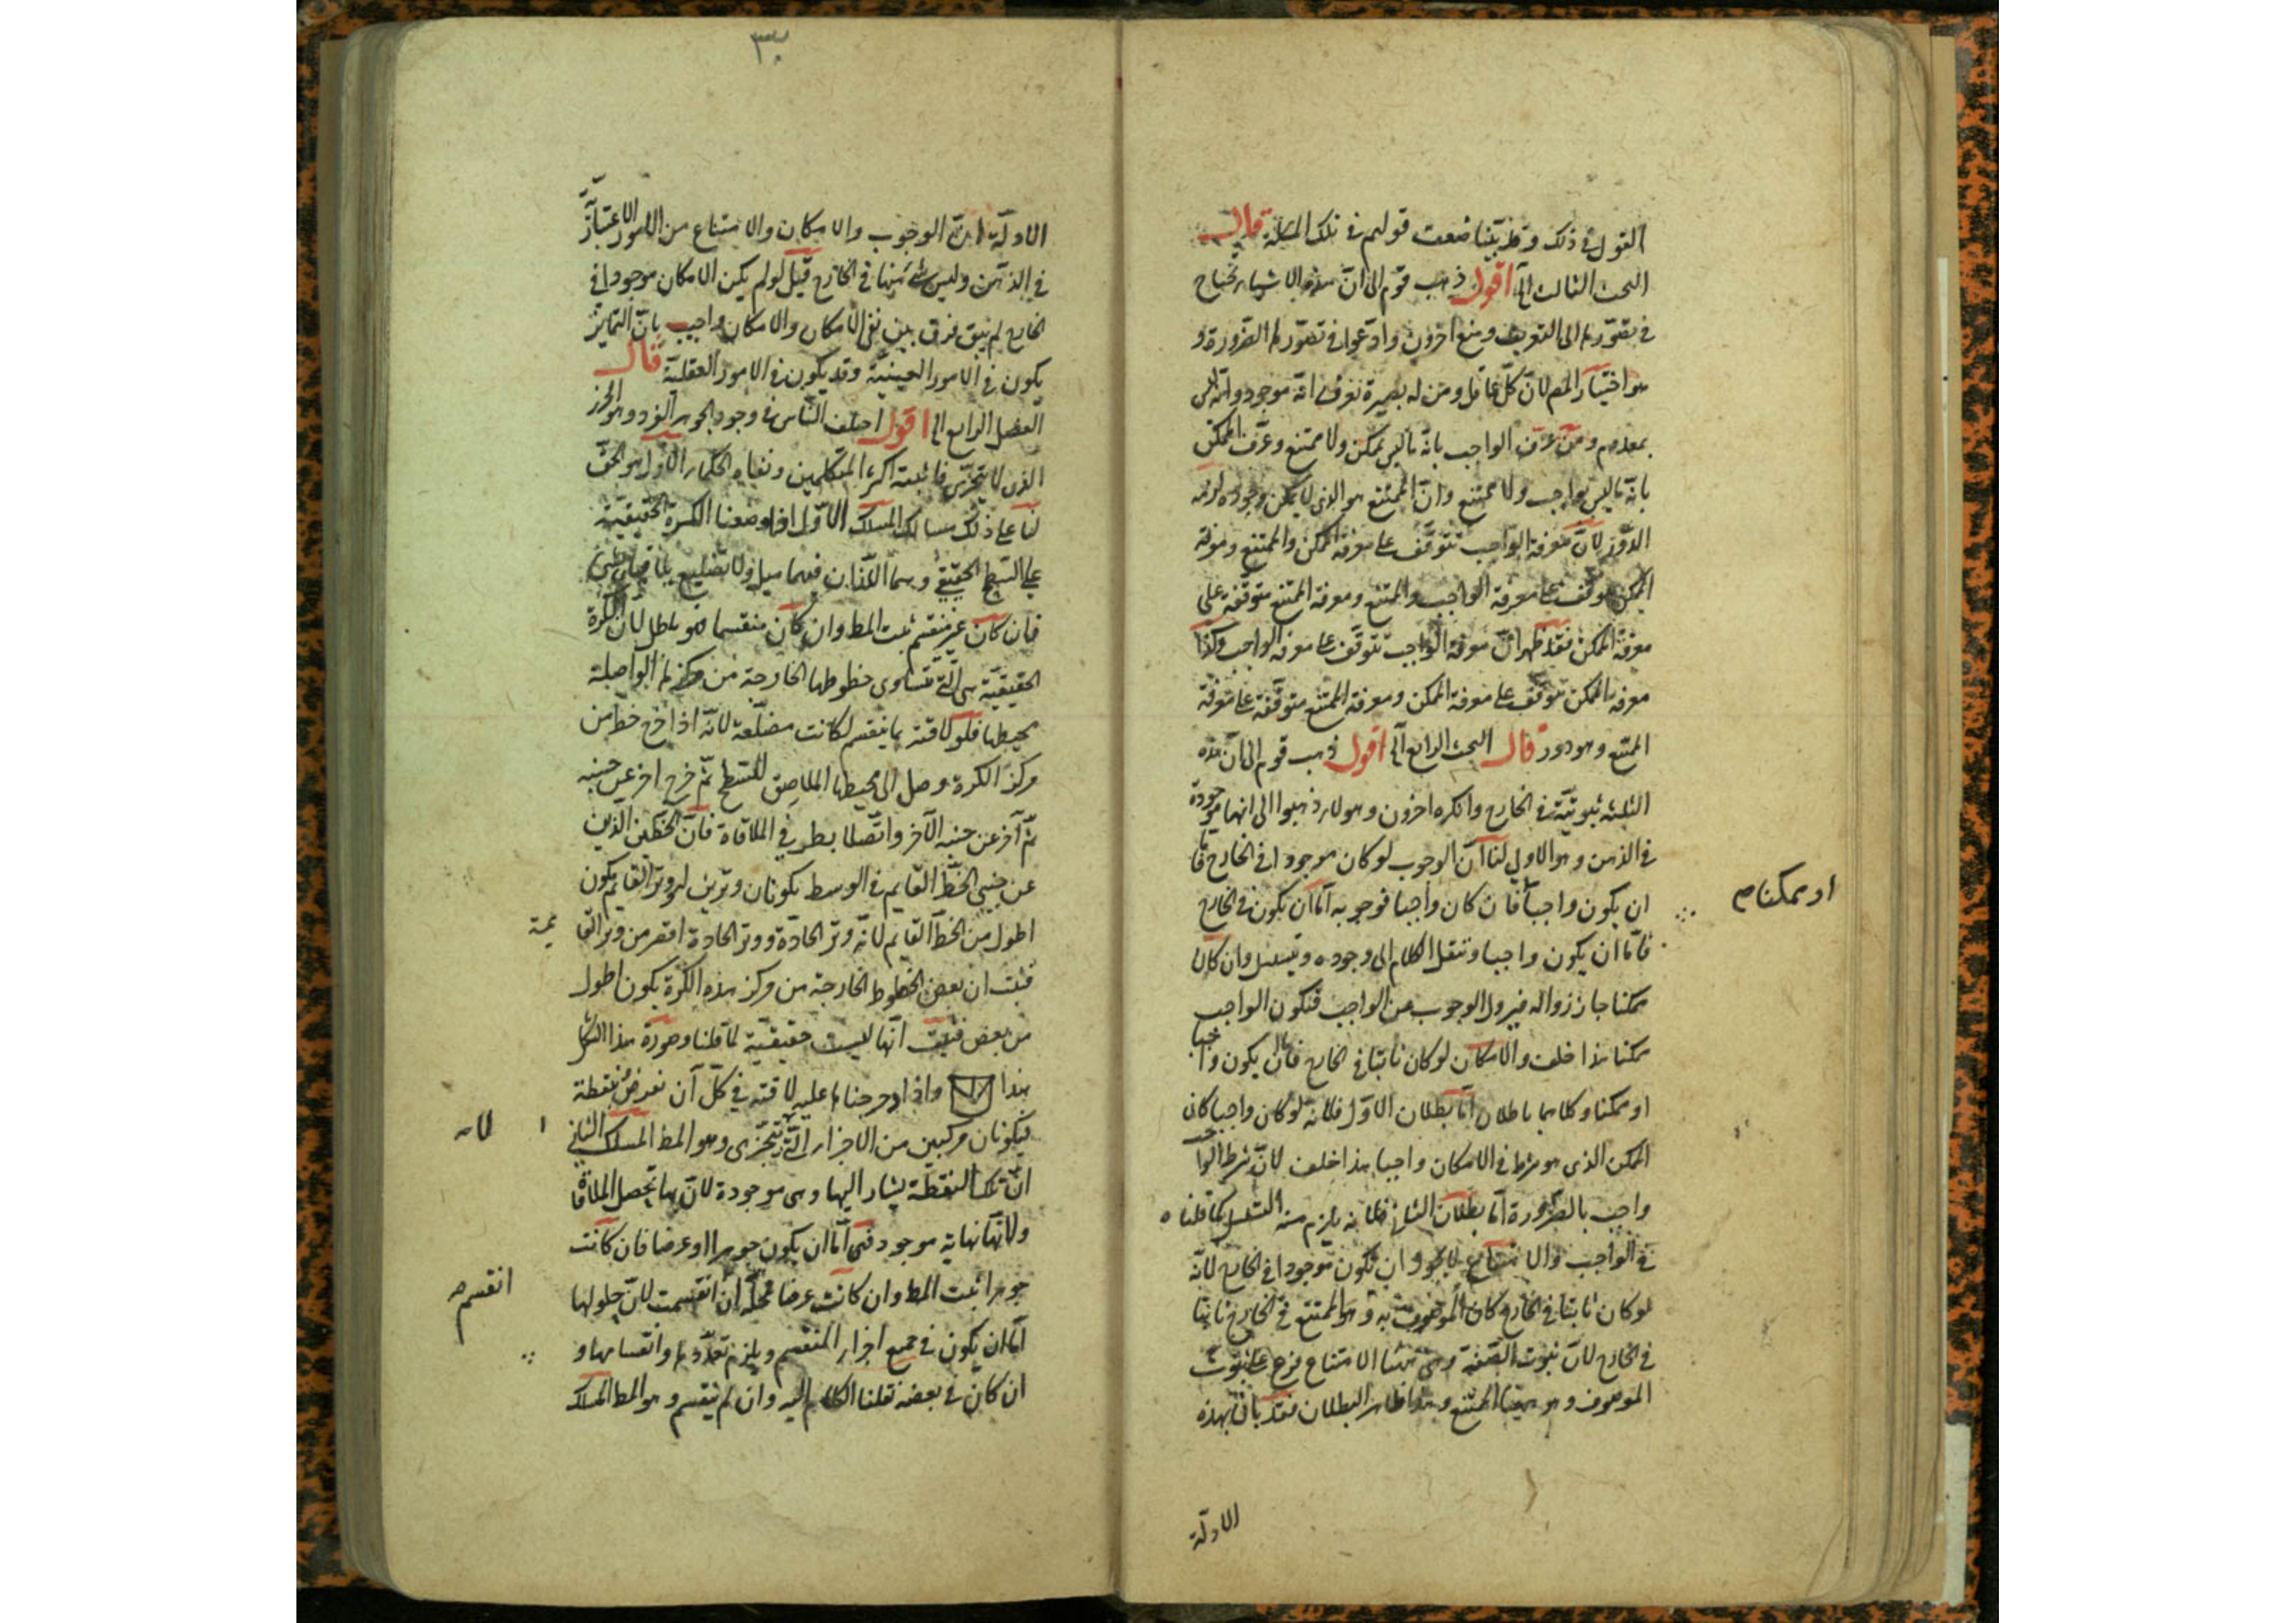 القول فى ذلك وقد بيّنا ضعف قولهم فى تلك المسئلة قال
البحث الثالث الى اقول ذهب قوم الى انّ هذه الاشياء تحتاج
فى تصوّرها الى التعريف ومنع اخرون وادّعوا فى تصوّرها الضّرورة و
هو اختيار المص لانّ كلّ عاقل ومن له بصيرة يعرف انّه موجود وانّه ليس
بمعدوم ومن عرّف الواجب بانّه ما ليس بممكن ولا ممتنع وعرّف الممكن
بانّه ما ليس بواجب ولا ممتنع وانّ الممتنع هو الذى لا يمكن وجوده لزمه
الدّور لانّ معرفة الواجب تتوقّف على معرفة الممكن والممتنع ومعرفة
الممكن تتوقف على معرفة الواجب والممتنع ومعرفة الممتنع متوقّفة على
معرفة الممكن فقد ظهر انّ معرفة الواجب تتوقف على معرفة الواجب وكذا
معرفة الممكن تتوقف على معرفة الممكن ومعرفة الممتنع متوقّفة على معرفة
الممتنع وهو دور قال البحث الرابع الى اقول ذهب قوم الى انّ هذه
الثلثة ثبوتيّة فى الخارج وانكره اخرون وهولاء ذهبوا الى انها موجودة
فى الذهن وهو الاولى لنا انّ الوجوب لو كان موجودا فى الخارج فامّا
ان يكون واجبا فان كان واجبا فوجوبه امّا ان يكون فى الخارج
او ممكنا م
فامّا ان يكون واجبا وننقل الكلام الى وجوده ويتسلسل وان كان
ممكنا جاز زواله فيزول الوجوب عن الواجب فيكون الواجب
ممكنا هذا خلف والامكان لو كان ثابتا فى الخارج فامّا ان يكون واجبا
او ممكنا وكلاهما باطلان امّا بطلان الاوّل فلانّه لو كان واجبا كان
الممكن الذى هو شرط فى الامكان واجبا هذا خلف لانّ شرط الواجب
واجب بالضّرورة امّا بطلان الثانى فلانّه يلزم منه التسلسل كما قلناه
فى الواجب والامتناع لا يجوز ان يكون موجودا فى الخارج لانّه
لو كان ثابتا فى الخارج كان الموصوف به وهو الممتنع فى الخارج ثابتا
فى الخارج لانّ ثبوت الصّفة وهى هيهنا الامتناع فرع على ثبوت
الموصوف وهو هيهنا الممتنع وهو ظاهر البطلان فقد بان بهذه
الادلّة
٣٠
الادلّة انّ الوجوب والامكان والامتناع من الامور الاعتباريّة
فى الذهن وليس شئ منها فى الخارج قيل لو لم يكن الامكان موجودا فى
الخارج لم يبق فرق بين نفى الامكان والامكان واجيب بانّ التمايز
يكون فى الامور العينيّة وقد يكون فى الامور العقليّة قال
الفصل الرابع الى اقول اختلف الناس فى وجود الجوهر الفرد وهو الجزء
الذى لا يتجزّى فاثبته اكثر المتكلمين ونفاه الحكماء الاوّل هو الحقّ
لنا على ذلك مسالك المسلك الاوّل اذا وضعنا الكرة الحقيقيّة
على السّطح الحقيقى وهما اللذان فيهما ميل ولا تضليع
فان كان غير منقسم ثبت المط وان كان منقسما فهو باطل لانّ الكرة
الحقيقيّة هى الّتى تتساوى خطوطها الخارجة من مركزها الواصلة
بمحيطها فلو لاقته بما ينقسم لكانت مضلّعة لانّه اذا خرج خط من
مركز الكرة وصل الى محيطها الملاصق للسّطح ثمّ خرج اخر عن جنبه
ثمّ آخر عن جنبه الآخر واتّصلا بطرفى الملاقاة فانّ الخطّين الذين
عن جنبى الخطّ القايم فى الوسط يكونان وترين لها ووتر القايمة يكون
اطول من الخطّ القايم لانّه وتر الحادّة ووتر الحادة اقصر من وتر القا
يمة
فثبت ان بعض الخطوط الخارجة من مركز هذه الكرة يكون اطول
من بعض فثبت انّها ليست حقيقيّة لما قلنا وصورة هذا الشكل
هذا واذا دحرجناها عليه لاقته فى كلّ آن نفرض بنقطة
فيكونان مركبين من الاجزاء الّتى لا تتجزّى وهو المط المسلك الثانى
لانه
انّ تلك النقطة يشار اليها وهى موجودة لانّ بها تحصل الملاقاة
ولانّها نهاية موجود فهى امّا ان يكون جوهرا او عرضا فان كانت
جوهرا ثبت المط وان كانت عرضا فمحلّها ان انقسمت لانّ حلولها
انقسم
امّا ان يكون فى جميع اجزاء المنقسم ويلزم تعدّدها وانقسامها و
ان كان فى بعضه نقلنا الكلام اليه وان لم ينقسم وهو المط المسلك